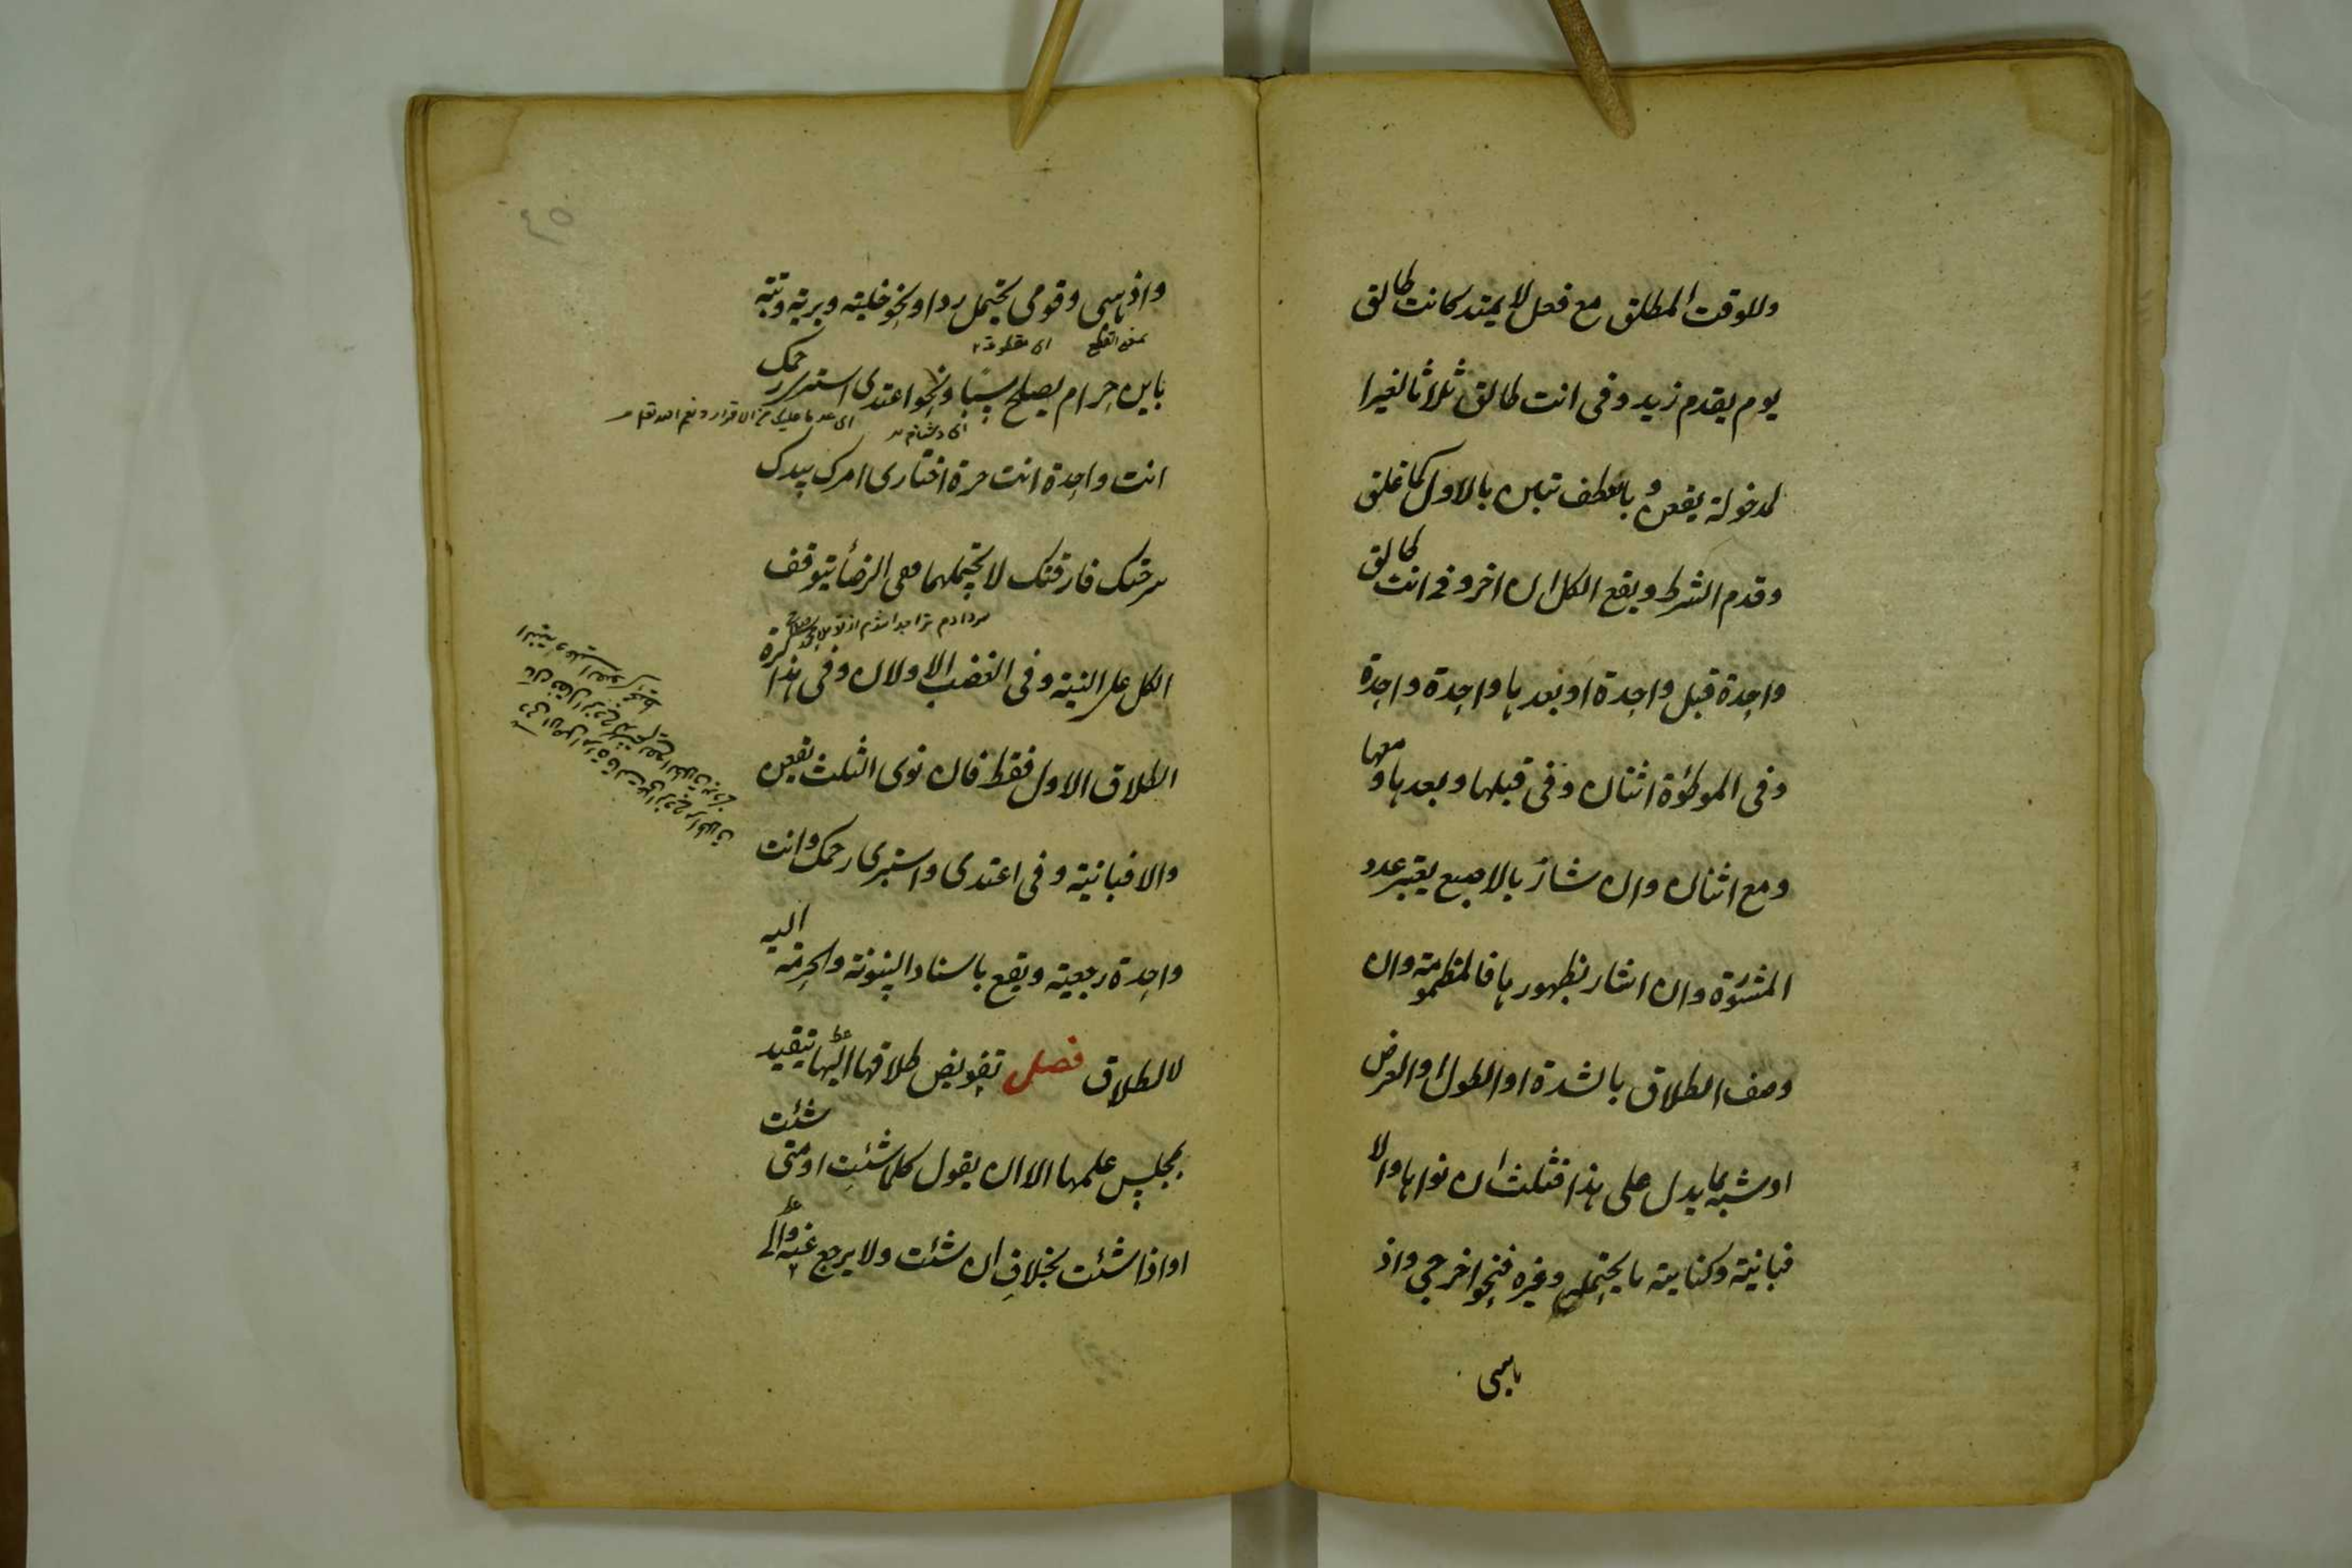 وللوقت المطلق مع فعل لا يمتد كانت طالق
يوم يقدم زيد وفى انت طالق ثلاثا لغيرا
لمدخولة يقعن وبالعطف تبين بالاول كما علق
وقدم الشرط ويقع الكل ان اخر وفى انت طالق
واحدة قبل واحدة او بعدها واحدة واحدة
وفى الموطؤة اثنان وفى قبلها وبعدها ومعها
ومع اثنان وان شار بالاصبع يعتبر عدد
المنشورة وان اشار بظهورها فالمضمومة وان
وصف الطلاق بالشدة او الطول او العرض
او شبه بما يدل على هذا فثلث ان نواها والا
فبائنة وكناية ما يحتمله وغيره فنحو اخرجى واذ
هبى
٤٥
واذهبى وقومى يحتمل ردا ونحو خلية وبرية وبتة
بمعنى القطع اى مقطوعة
باين حرام يصلح سبا ونحو اعتدى استبرئ رحمك
اى دشنام
انت واحدة انت حرة اختارى امرك بيدك
سرحتك فارقتك لا يحتملهما ففى الرضأ يتوقف
الكل على النية وفى الغضب الاولان وفى مذاكرة
الطلاق الاول فقط فان نوى الثلث يقعن
والا فبائنة وفى اعتدى واستبرئ رحمك وانت
واحدة رجعية ويقع باسناد البينونة والحرمة اليه
لا الطلاق فصل تفويض طلاقها اليها يتقيد
بمجلس علمها الا ان يقول كلما شئت او متى شئت
او اذا شئت بخلاف ان شئت ولا يرجع عنه والى